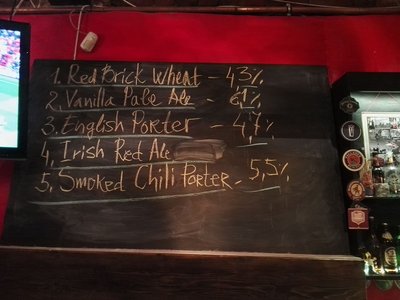 1. Red Brick Wheat – 4,3%
2. Vanilla Pale Ale – 6,1%
3. English Porter – 4,7%
4. Irish Red Ale
5. Smoked Chili Porter – 5,5%